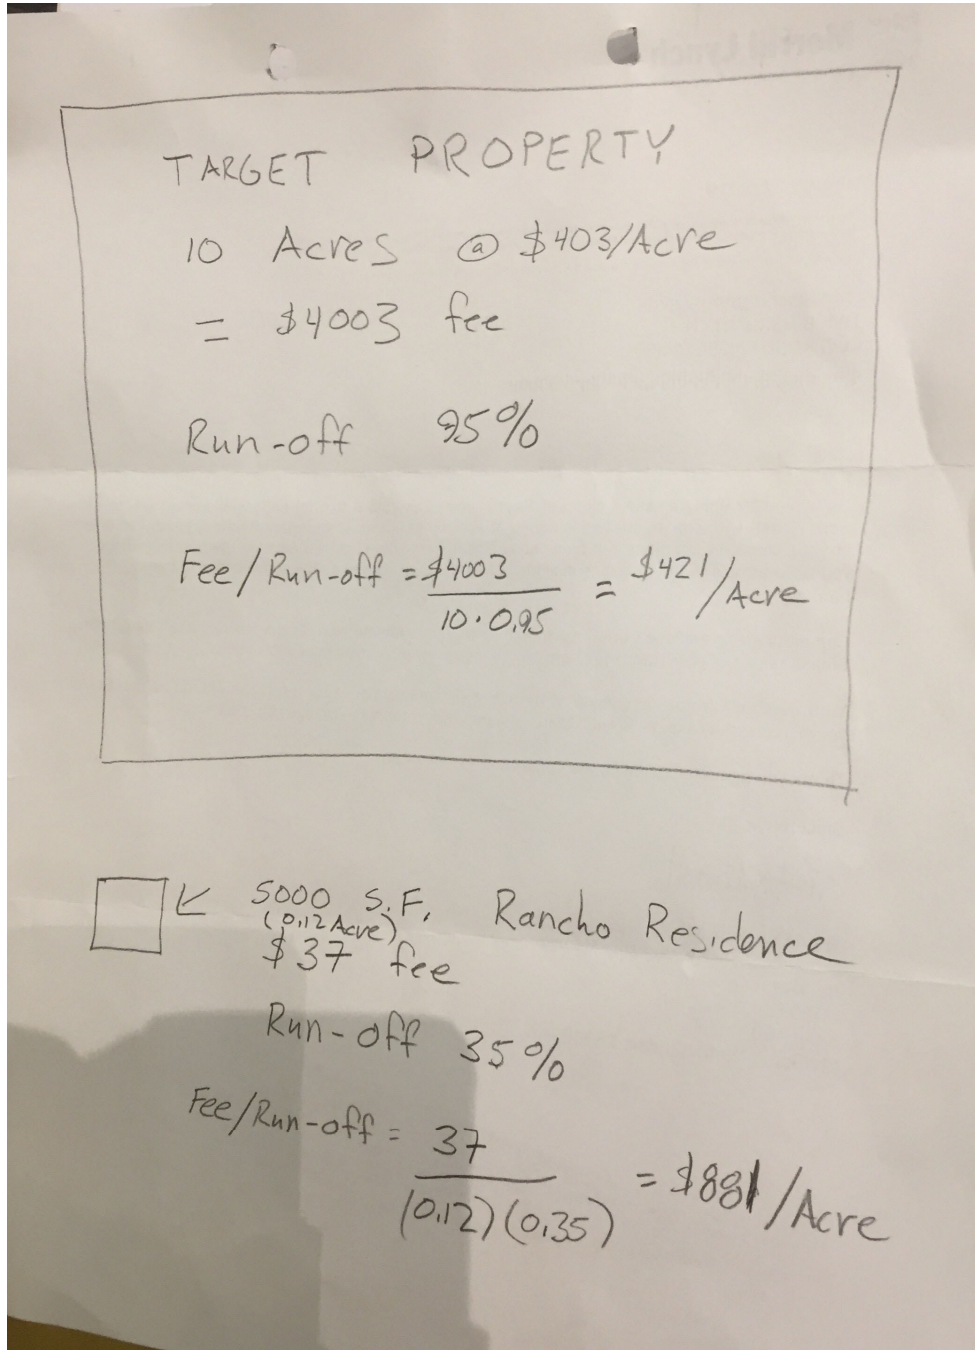 TARGET PROPERTY
10 Acres @ $403/Acre
= $4003 fee
Run-off 95%
Fee/Run-off = $4003 / 10 · 0.95 = $421/Acre
5000 S.F. Rancho Residence
(0.12 Acre)
$37 fee
Run-off 35%
Fee/Run-off = 37 / (0.12)(0.35) = $881/Acre